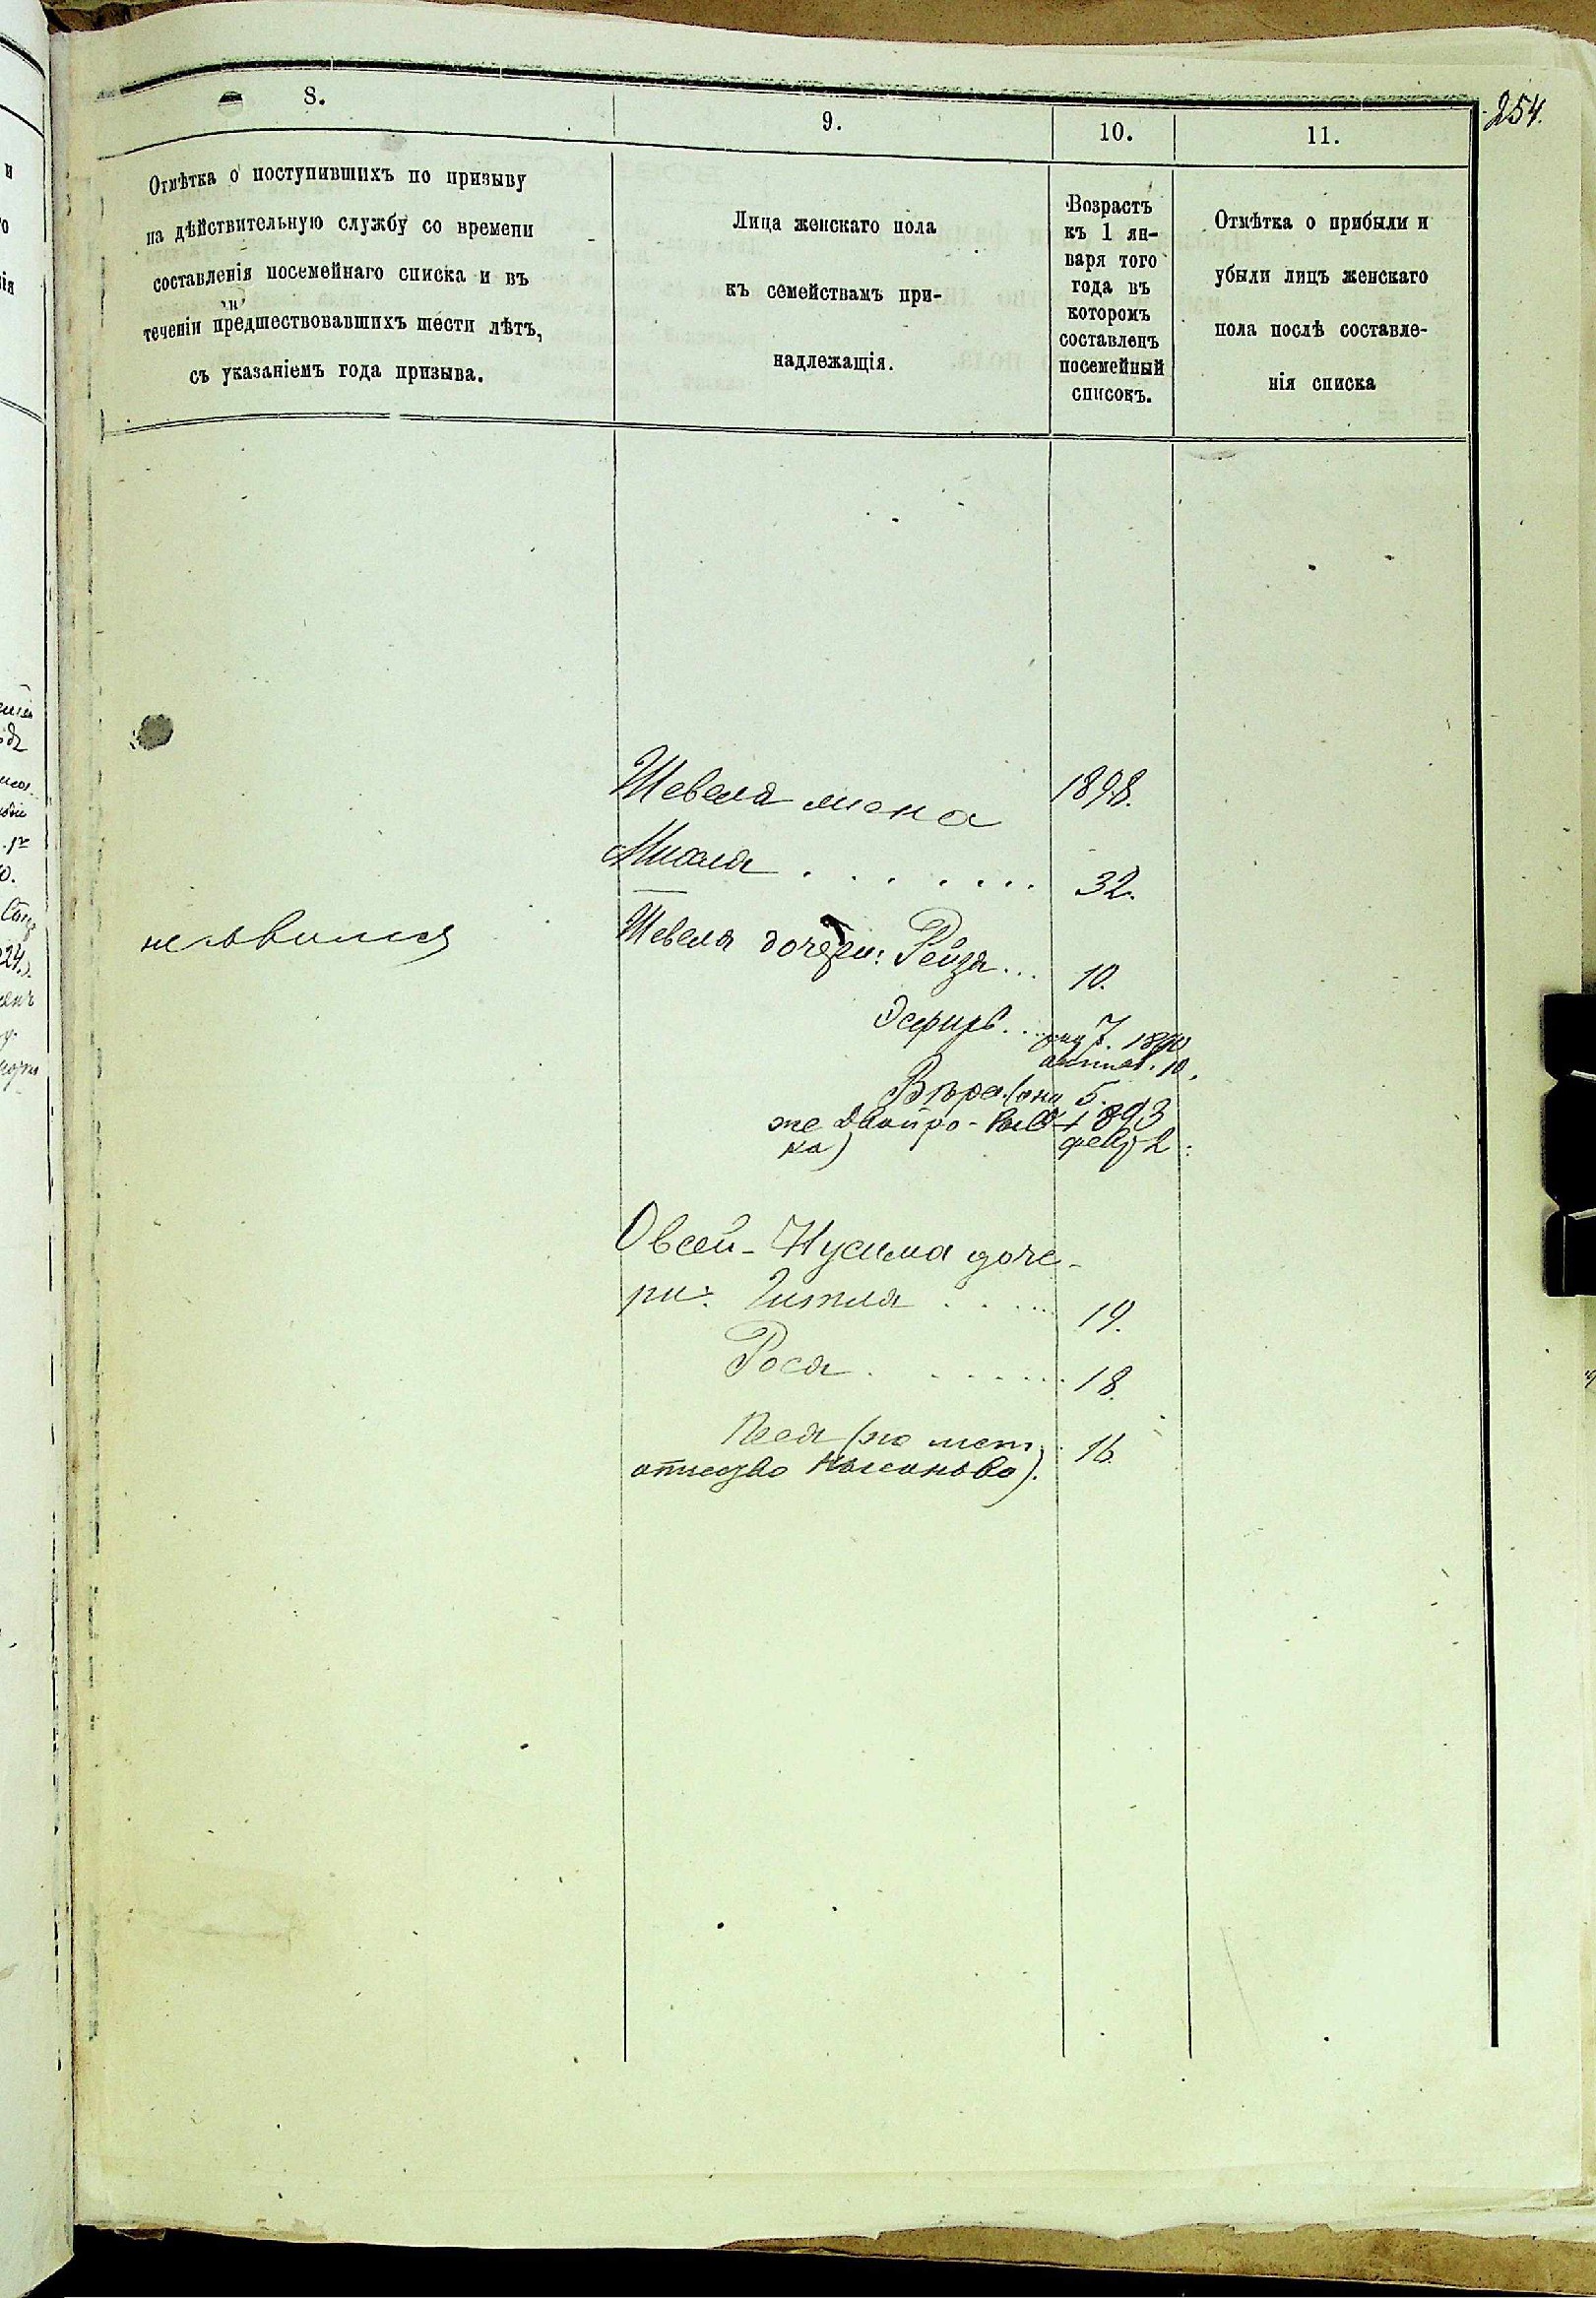 254.
8.
9.
10.
11.
Отмѣтка о поступившихъ по призыву
на дѣйствительную службу со времени
составленія посемейнаго списка и въ
теченіи предшествовавшихъ шести лѣтъ,
съ указаніемъ года призыва.
Лица женскаго пола
къ семействамъ при-
надлежащія.
Возрастъ
къ 1 ян-
варя того
года въ
которомъ
составленъ
посемейный
списокъ.
Отмѣтка о прибыли и
убыли лицъ женскаго
пола послѣ составле-
нія списка
Шевеля жена 1898.
Михля . . . . . . . 32.
не явился
Шевеля дочери: Рейза... 10.
Эсфирь... 7. 1890
10.
Вѣра (она 5.
же Двойра- 1893
ка) февр 2.
Овсей-Нусима доче-
ри: Гитля . . . . . 19.
Рося . . . . . . 18.
Песя (по мет. 16.
отчество).